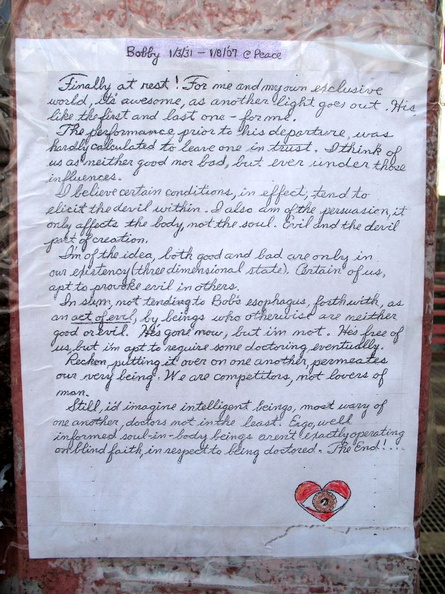 Bobby 1/3/31 - 1/8/07 @ Peace
Finally at rest! For me and my own exclusive
world, it's awesome, as another light goes out. His
like the first and last one - for me.
The performance, prior to his departure, was
hardly calculated to leave one in trust. I think of
us as neither good nor bad, but ever under those
influences.
I believe certain conditions, in effect, tend to
elicit the devil within. I also am of the persuasion, it
only affects the body, not the soul. Evil and the devil
part of creation.
I'm of the idea, both good and bad are only in
our existency (three dimensional state). Certain of us,
apt to provoke evil in others.
In sum, not tending to Bob's esophagus, forthwith, as
an act of evil, by beings who otherwise are neither
good or evil. He's gone now, but i'm not. He's free of
us, but i'm apt to require some doctoring eventually.
Reckon, putting it over on one another, permeates
our very being. We are competitors, not lovers of
man.
Still, i'd imagine intelligent beings, most wary of
one another, doctors not in the least. Ergo, well
informed soul-in-body beings aren't exactly operating
on blind faith, in respect to being doctored. The End!...